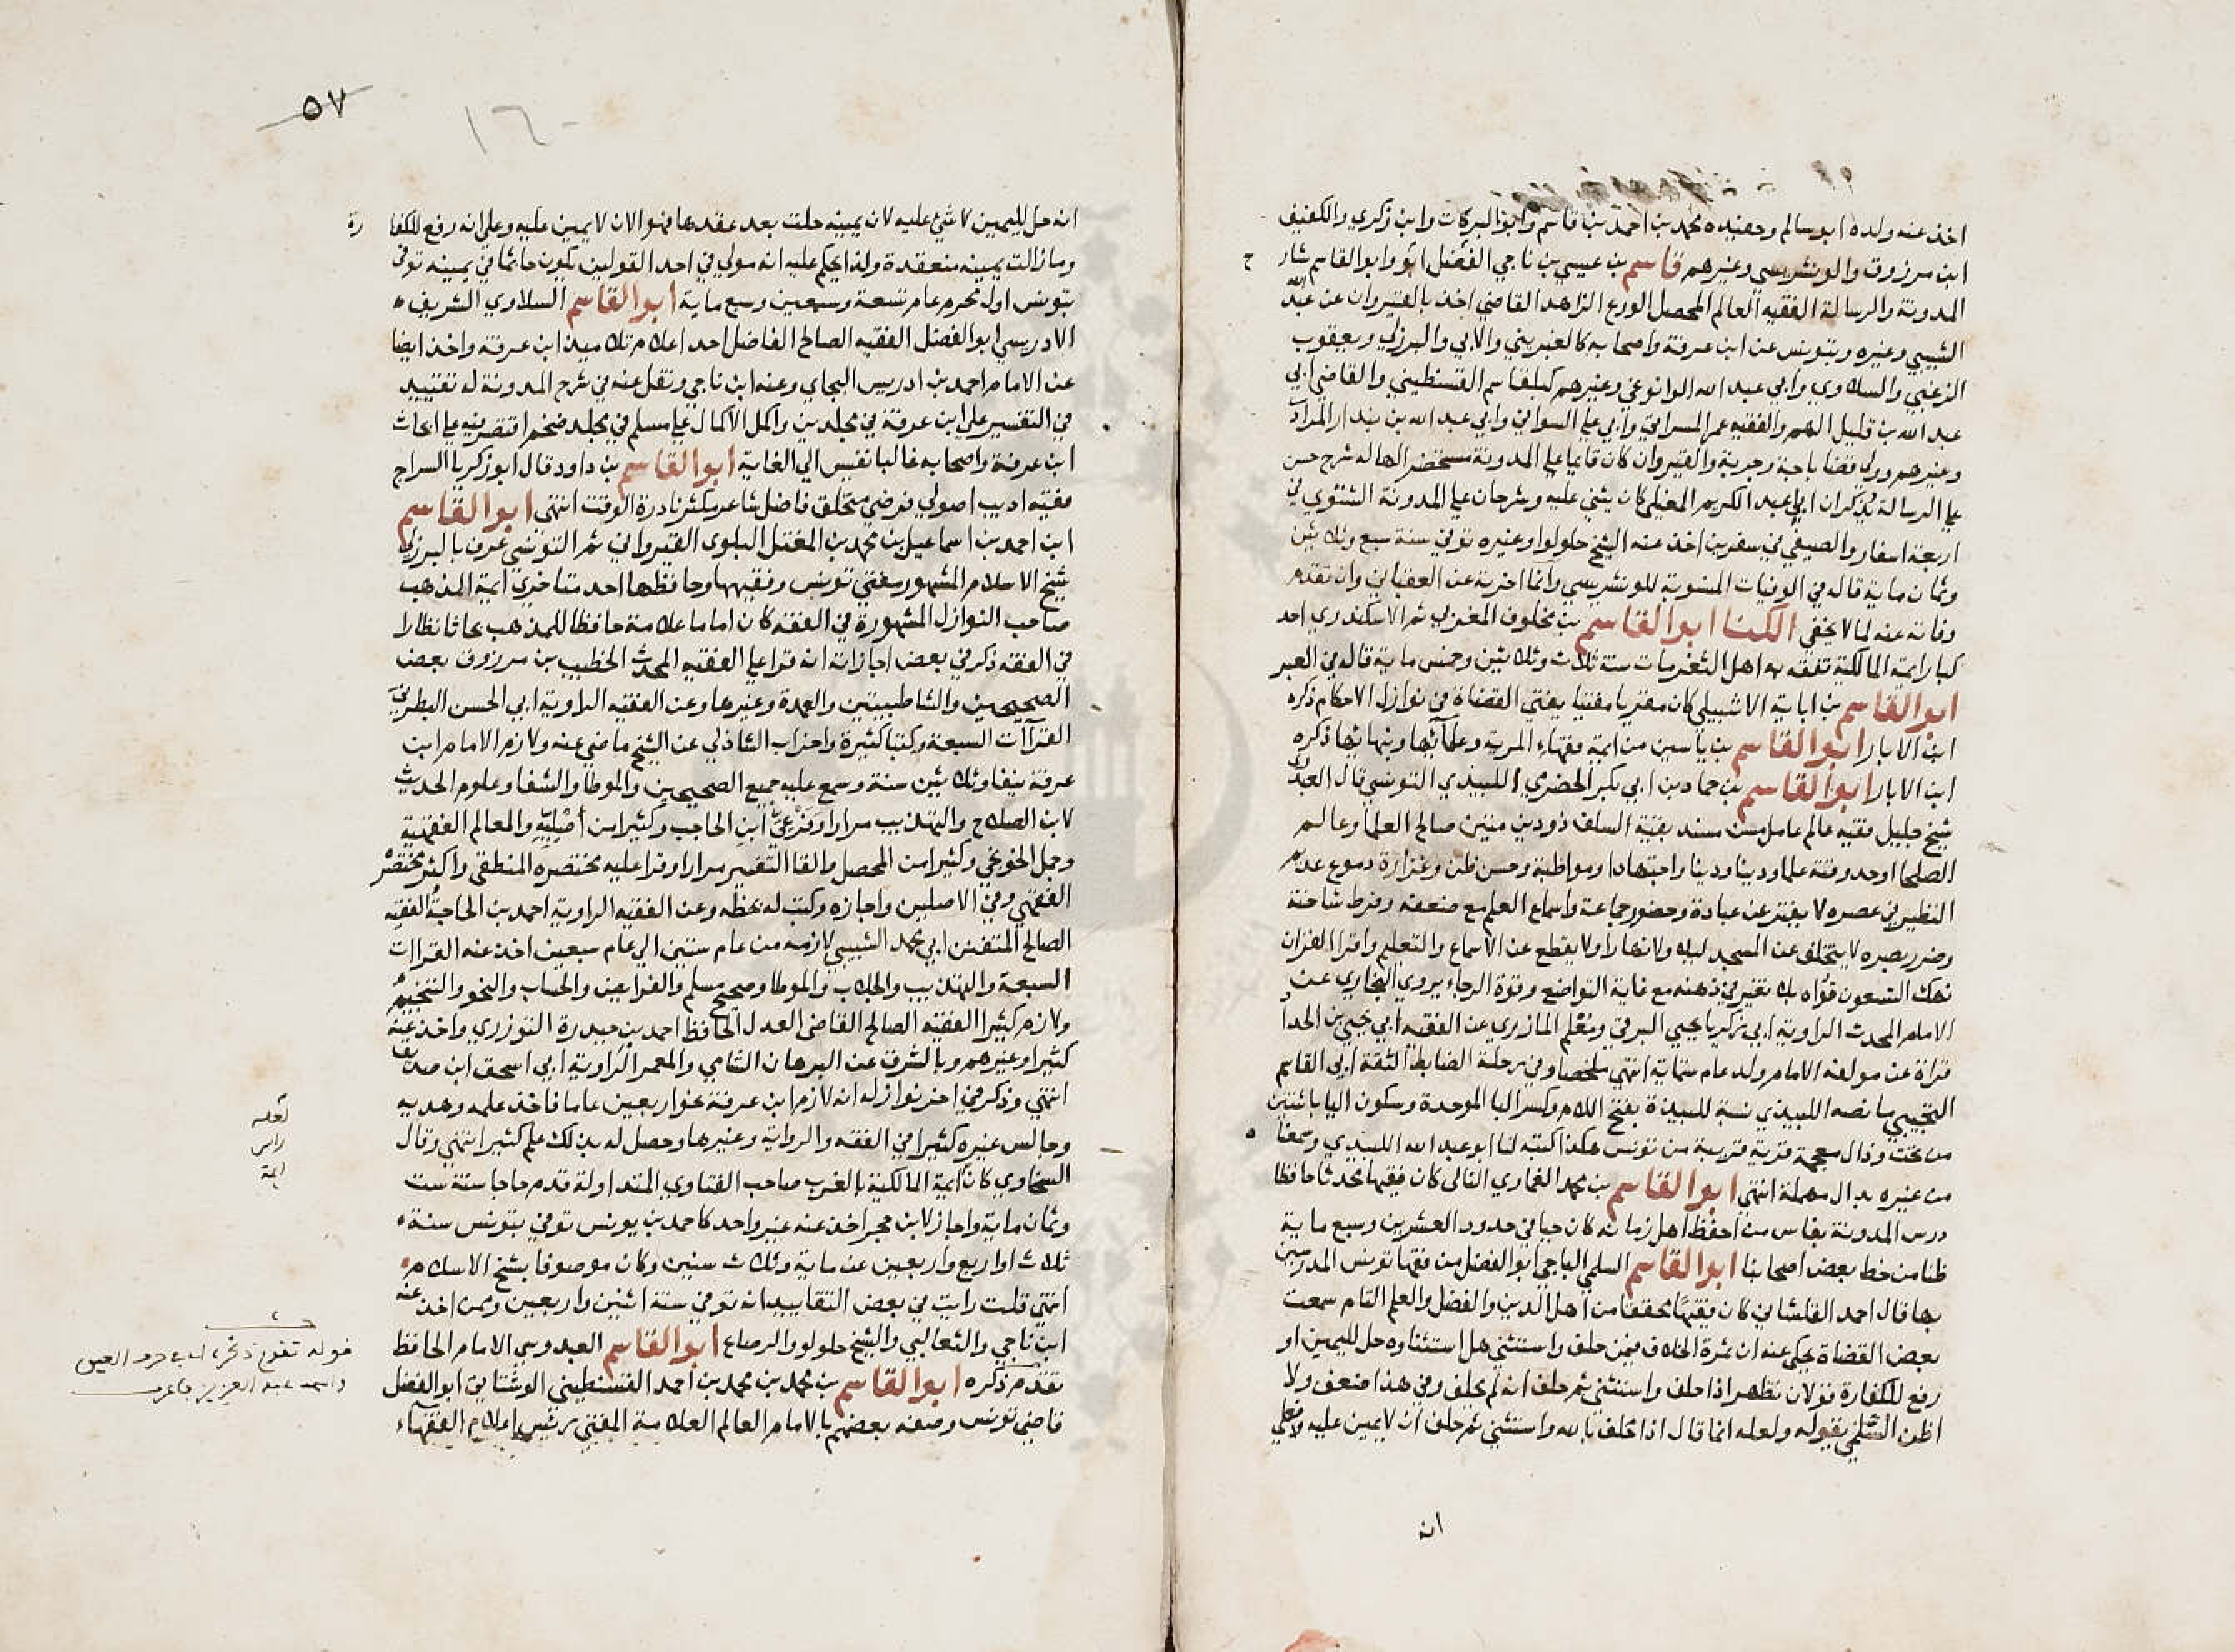 اخذ عنه ولده ابو سالم وحفيده محمد بن احمد بن قاسم وابو البركات وابن زكري والكفيف
ابن مرزوق والونشريسي وغيرهم قاسم بن عيسي بن ناجي الفضل ابو وابو القاسم شار ح
المدونة والرسالة الفقيه العالم المحصل الورع الزاهد القاضي اخذ بالقيروان عن عبد الله
الشبيبي وغيره وبتونس عن ابن عرفة واصحابه كالغبريني والابي والبرزلي ويعقوب
الزغبي والسلاوي وابي عبد الله الوانوغي وغيرهم كبلقاسم القسنطيني والقاضي ابي
عبد الله بن قليل الهم والفقيه عمر المسراتي وابي علي السواني وابي عبد الله بن بندار المرادي
وغيرهم وولي قضا باجة وجربة والقيروان كان قايما علي المدونة مستحضرا لها له شرح حسن
علي الرسالة يذكر ان ابي عبد الكريم المغيلي كان يثني عليه وشرحان علي المدونة الشتوي في
اربعة اسفار والصيفي في سفرين اخذ عنه الشيخ حلولو وغيره توفي سنة سبع وثلاثين
وثمان ماية قاله في الوفيات المنسوبة للونشريسي وانما اخرته عن العقباني وان تقدم
وفاته عنه لما لا يخفي الكنا ابو القاسم بن مخلوف المغربي ثم الاسكندري احد
كبار ايمة المالكية تفقه به اهل الثغر مات سنة ثلاث وثلاثين وخمس ماية قاله في العبر
ابو القاسم بن اباية الاشبيلي كان مقريا مفتيا يفتي القضاة في نوازل الاحكام ذكره
ابن الابار ابو القاسم بن ياسين من ايمة فقهاء المرية وعلمائها ونبهائها ذكره
ابن الابار ابو القاسم بن حماد بن ابي بكر الحضرمي اللبيدي التونسي قال العبدلي
شيخ جليل فقيه عالم عامل مسن مسند بقية السلف ذو دين متين صالح العلما وعالم
الصلحا اوحد وقته علما ودينا ودينا واجتهادا ومواظبة وحسن ظن وغزارة دموع عديم
النظير في عصره لا يفتر عن عبادة وحضور جماعة واسماع العلم مع ضعفه وفرط شاخنة
وضرر بصره لا يتخلف عن المسجد ليلا ولا نهارا ولا يقطع عن الاسماع والتعليم واقرا القران
نهك التسعون قواه بلا تغير في ذهنه مع غاية التواضع وقوة الرجاء يروي البخاري عن
الامام المحدث الراوية ابي زكريا يحيي البرقي ومعلم المازري عن الفقيه ابي يحيي بن الحدا
قراة عن مولفه الامام ولد عام ستماية انتهي ملخصا وفي رحلة الضابط الثقة ابي القاسم
التجيبي ما نصه اللبيدي نسبة للبيدة بفتح اللام وكسر البا الموحدة وسكون اليا باثنين
من تحت وذال معجمة قرية قريبة من تونس هكذا كتبه لنا ابو عبد الله اللبيدي وسمعنا ه
من غيره بدال مهملة انتهي ابو القاسم بن محمد الغماري التالي كان فقيها محدثا حافظا
درس المدونة بفاس من احفظ اهل زمانه كان حيا في حدود العشرين وسبع ماية
ظنا من خط بعض اصحابنا ابو القاسم السلمي الباجي ابو الفضل من فقها تونس المدرسين
بها قال احمد القلشاني كان فقيها محققا من اهل الدين والفضل والعلم التام سمعت
بعض القضاة يحكي عنه ان ثمرة الخلاف فيمن حلف واستثني هل استثناوه حل لليمين او
رفع للكفارة قولان تظهر اذا حلف واستثني ثم حلف انه لم يحلف وفي هذا ضعف ولا
اظن السلمي يقوله ولعله انما قال اذا حلف بالله واستثني ثم حلف ان لا يمين عليه فعلي
انه
٥٧
١٦٠
انه حل لليمين لا شيء عليه لان يمينه حلت بعد عقدها فهو الان لا يمين عليه وعلي انه رفع للكفا رة
وما زالت يمينه منعقدة ولذا يحكم عليه انه مولي في احد القولين يكون حانثا في يمينه توفي
بتونس اول محرم عام تسعة وسبعين وسبع ماية ابو القاسم السلاوي الشريف
الادريسي ابو الفضل الفقيه الصالح الفاضل احد اعلام تلاميذ ابن عرفة واخذ ايضا
عن الامام احمد بن ادريس البجاي وعنه ابن ناجي ونقل عنه في شرح المدونة له تقييد
في التفسير علي ابن عرفة في مجلدين واكمل الاكمال علي مسلم في مجلد ضخم اقتصر فيه علي ابحاث
ابن عرفة واصحابه غالبا نفيس الي الغاية ابو القاسم بن داود قال ابو زكريا السراج
فقيه اديب اصولي فرضي متخلق فاضل شاعر مكثر نادرة الوقت انتهي ابو القاسم
ابن احمد بن اسماعيل بن محمد بن المعتل البلوي القيرواني ثم التونسي عرف بالبرزلي
شيخ الاسلام المشهور مفتي تونس وفقيهها وحافظها احد متاخري ايمة المذهب
صاحب النوازل المشهورة في الفقه كان اماما علامة حافظا للمذهب بحاثا نظارا
في الفقه ذكر في بعض اجازاته انه قرا علي الفقيه المحدث الخطيب بن مرزوق بعض
الصحيحين والشاطبيتين والعمدة وغيرها وعن الفقيه الراوية ابي الحسن البطرني
القراآت السبعة وكتبا كثيرة واحزاب الشاذلي عن الشيخ ماضي عنه ولازم الامام ابن
عرفة نيفا وثلاثين سنة وسمع عليه جميع الصحيحين والموطا والشفا وعلوم الحديث
لابن الصلاح والتهذيب مرارا وفرعي ابن الحاجب وكثيرا من اصليه والمعالم الفقهية
وجمل الخونجي وكثيرا من المحصل والقا التفسير مرارا وقرا عليه مختصره المنطقي واكثر مختصره
الفقهي وفي الاصلين واجازه وكتب له بخطه وعن الفقيه الراوية احمد بن الحاجة الفقيه
الصالح المتفنن ابي محمد الشبيبي لازمه من عام ستين الي عام سبعين اخذ عنه القراات
السبعة والتهذيب والجلاب والموطا وصحيح مسلم والفرايض والحساب والنحو والتنجيم
ولازم كثيرا الفقيه الصالح القاضي العدل الحافظ احمد بن حيدرة التوزري واخذ عنه
كثيرا وغيرهم وبالشرق عن البرهان الشامي والمعمر الراوية ابي اسحق ابن صديق
انتهي وذكر في اخر نوازله انه لازم ابن عرفة نحو اربعين عاما فاخذ علمه وهديه
وجالس غيره كثيرا في الفقه والرواية وغيرها وحصل له بذلك علم كثير انتهي وقال
السخاوي كان ايمة المالكية بالغرب صاحب الفتاوي المتداولة قدم حاجا سنة ست
وثمان ماية واجاز لابن حجر اخذ عنه غير واحد كاحمد بن يونس توفي بتونس سنة
ثلاث او اربع واربعين عن ماية وثلاث سنين وكان موصوفا بشيخ الاسلام
انتهي قلت رايت في بعض التقاييد انه توفي سنة اثنين واربعين وممن اخذ عنه
ابن ناجي والثعالبي والشيخ حلولو والرصاع ابو القاسم العبدوسي الامام الحافظ
تقدم ذكره ابو القاسم بن محمد بن محمد بن احمد القسنطيني الوشتاتي ابو الفضل
قاضي تونس وصفه بعضهم بالامام العالم العلامة المفتي رئيس اعلام الفقهاء
لعله
راس
ايمة
قوله تقدم ذكره اي في حرف العين
واسمه عبد العزيز فاعرف